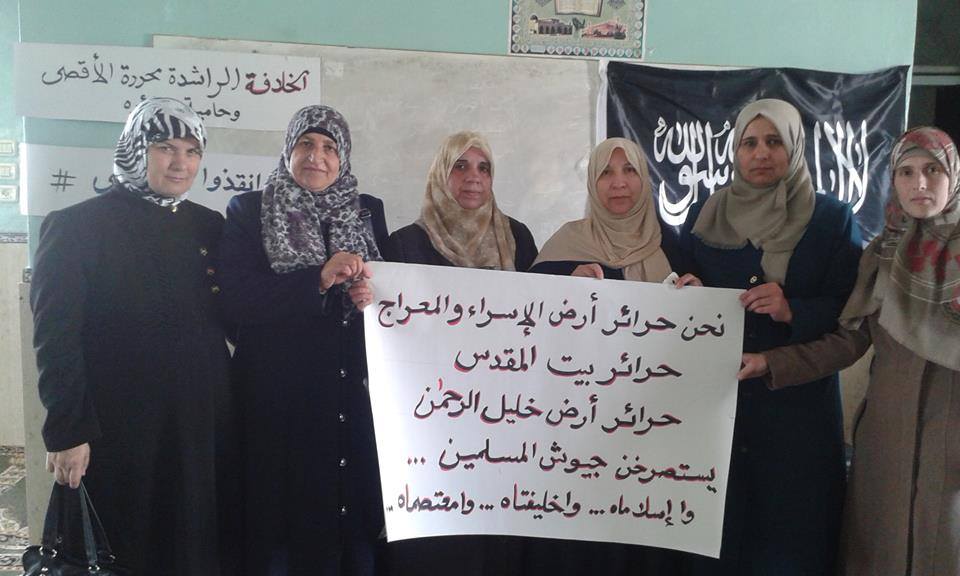 الخلافة الراشدة محررة الأقصى
وحامية
# انقذوا
لا إله
رسول الله
نحن حرائر أرض الإسراء والمعراج
حرائر بيت المقدس
حرائر أرض خليل الرحمٰن
يستصرخن جيوش المسلمين ...
وا إسلاماه ... واخليفتاه ... وامعتصماه ...